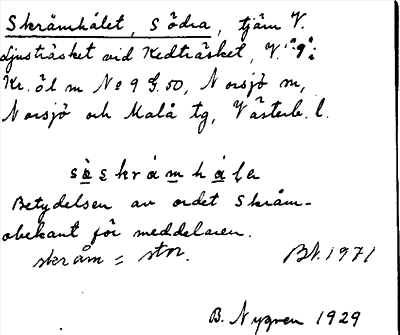 Skråmhålet, Södra, tjärn V.
Ljusträsket vid Kedträsket, V.
Kr. öl m No 9 G. 50, Norsjö sn,
Norsjö och Malå tg, Västerb. l.
Betydelsen av ordet Skråm-
obekant för meddelaren.
skråm = stor. BN. 1971
B. Nygren 1929